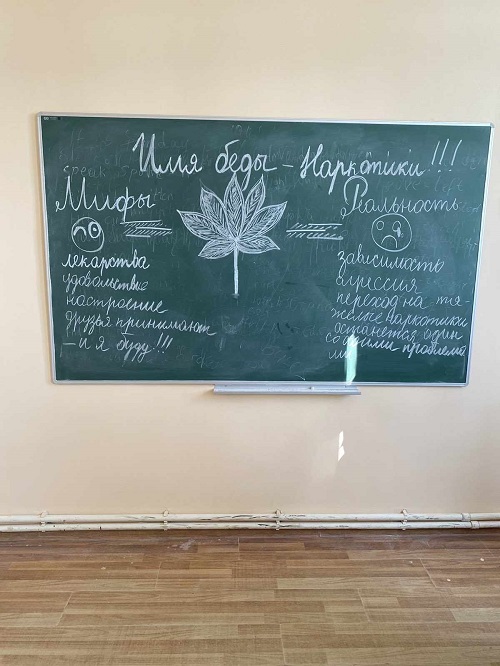 Имя беды – Наркотики!!!
Мифы
лекарства
удовольствие
настроение
друзья принимают
– и я буду!!!
Реальность
зависимость
переход на тя-
желые наркотики
останется один
с проблема
ми